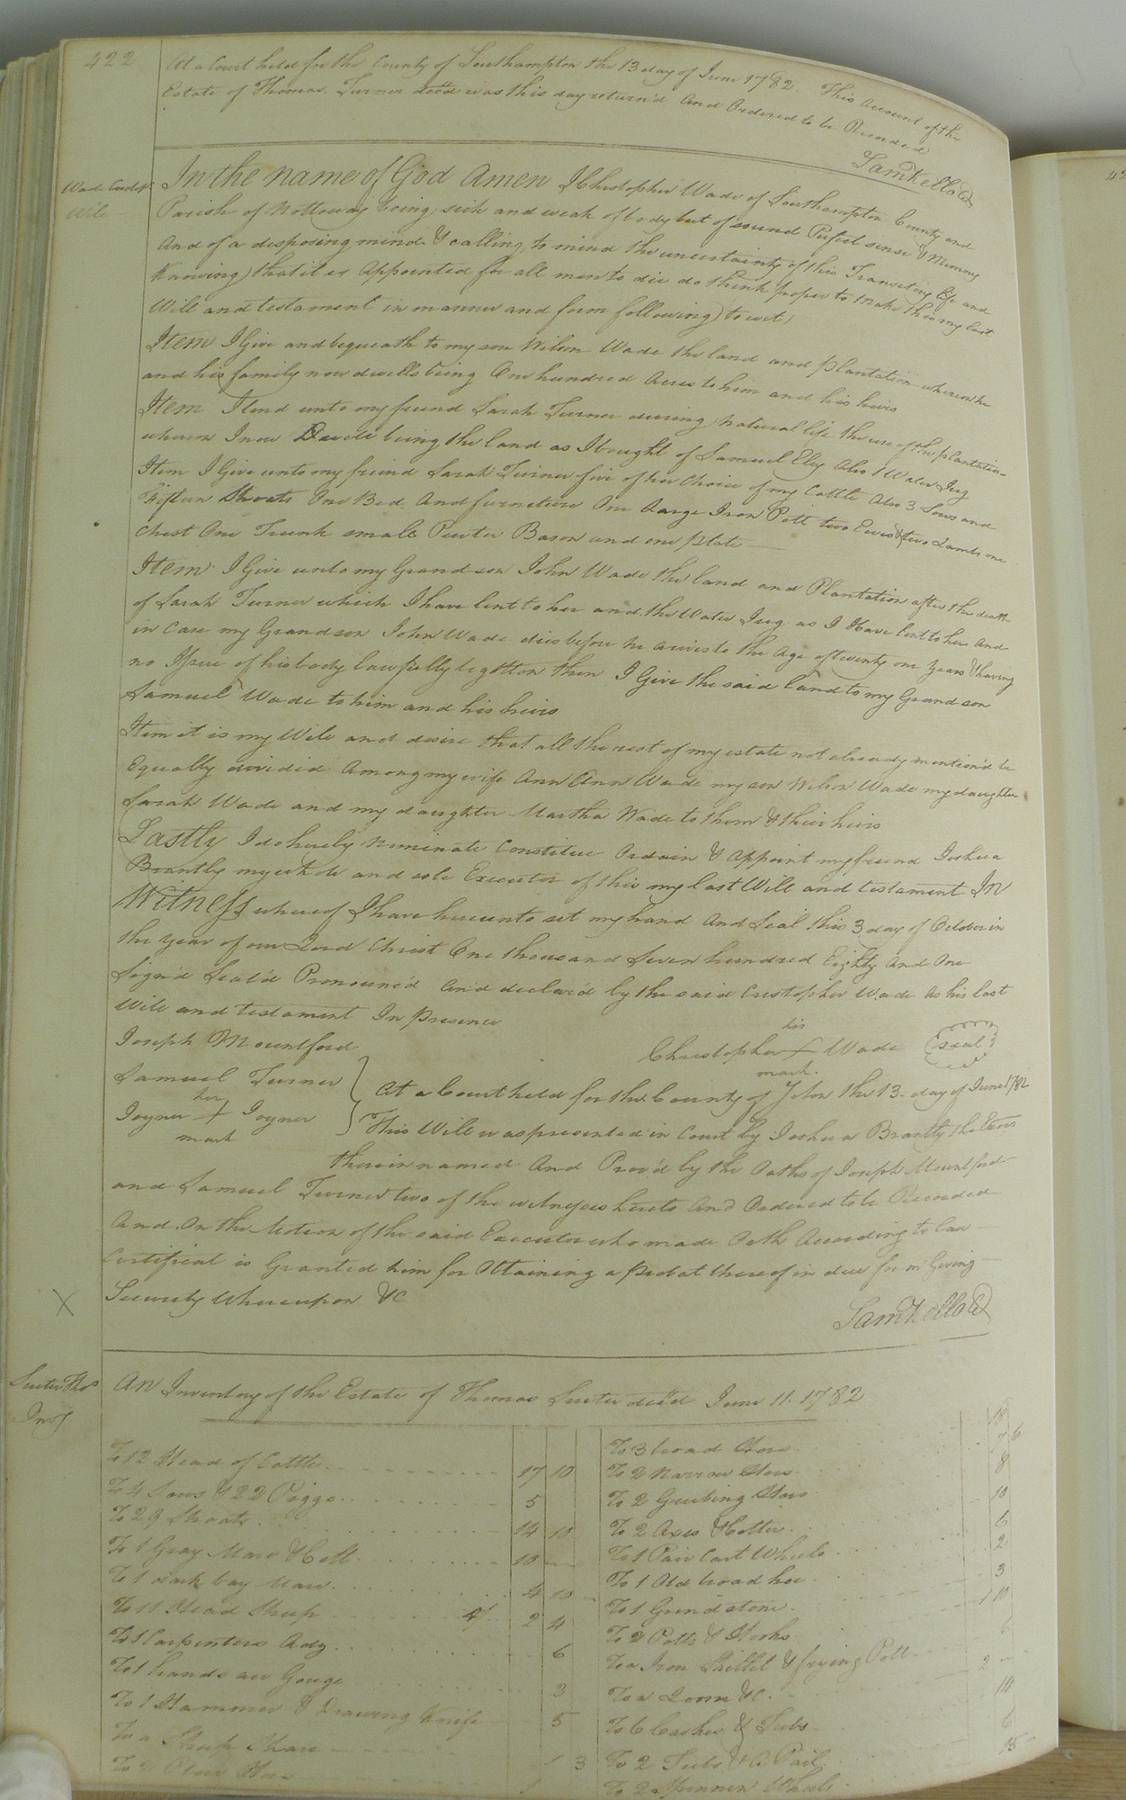 422
At a Court held for the County of Southampton the 13 day of June 1782. This Account of the
Estate of Thomas Turner dec'd was this day return'd And Ordered to be Recorded
Saml Kello Cl
Wade
Will
In the name of God Amen I Christopher Wade of Southampton County and
Parish of Nottoway being sick and weak of body but of sound Perfect sense & Memory
And of a disposing mind & calling to mind the uncertainty of this Transitory life and
Knowing that it is Appointed for all men to die do think proper to make this my last
Will and testament in manner and form following) to wit,
Item I Give and bequeath to my son Wilson Wade the land and plantation whereon he
and his family now dwells being One hundred Acres to him and his heirs
Item I lend unto my friend Sarah Turner during Natural life the use of the plantation
whereon I now Dwell being the land as I bought of Samuel Eley Also 1 Water Jug
Item I Give unto my friend Sarah Turner five of her choice of my Cattle Also 3 Sows and
Fifteen Shoats One Bed And furneture One Large Iron Pott two Ewes & two Lambs one
Chest One Trunk small Pewter Bason and one plate
Item I Give unto my Grand son John Wade the land and Plantation after the death
of Sarah Turner which I have lent to her and the Water Jug as I Have lent to her And
in Case my Grandson John Wade dies before he arives to the Age of twenty one Years & having
no Issue of his body lawfully begotton then I Give the said land to my Grand son
Samuel Wade to him and his heirs
Item it is my Will and desire that all the rest of my estate not already mention'd be
Equally divided Among my wife Ann Ann Wade my son Wilson Wade my daughter
Sarah Wade and my daughter Martha Wade to them & their heirs
Lastly I do hereby Nominate Constitue Ordain & Appoint my friend Joshua
Brantly my whole and sole Executor of this my last Will and testament In
Witness whereof I have hereunto set my hand And Seal this 3 day of October in
the Year of our Lord Christ One thousand Seven hundred Eighty And One
Sign'd Seal'd Pronounc'd And declar'd by the said Cristopher Wade As his last
Will and testament In Presence
Joseph Mountford
Samuel Turner
her
Joyner + Joyner
mark
his
Christopher + Wade (seal)
mark
At a Court held for the County of the 13. day of June 1782
This Will was presented in Court by Joshua Brantly the Exor
therein named And Prov'd by the Oaths of Joseph Mountford
and Samuel Turner two of the witnesses hereto And Ordered to be Recorded
And On the Motion of the said Executor who made Oath According to Law
Certificat is Granted him for Obtaining a probat thereof in due form Giving
Security Whereupon &c
Saml Kello Cl
X
Suiter Thos
Invy
An Inventory of the Estate of Thomas Suiter dec'd June 11. 1782
To 12 Head of Cattle 17 10
To 4 Sows & 22 Piggs 5
To 29 Shoats 14 10
To 1 Gray Mare & Colt 10
To 1 dark bay Mare 4 10
To 11 Head Sheep 4/ 2 4
To 1 Carpenters Adg 6
To 1 handsaw Gouge 3
To 1 Hammer & Drawing Knife 5
To a Plow Share 1 3
To 2 Plow Hoes 1
To 3 broad Hoes 18
To 2 Narrow Hoes 7 6
To 2 Grubing Hoes 8
To 2 Axes 10
To 1 Pair Cart Wheels 6
To 1 Old broad hoe 2
To 1 Grindstone 3
To 2 Potts & Hooks 1 10
To a Iron Skillet & frying Pott 6
To a Loom &c. 2
To 6 Cashes & Tubs 14
To 2 Tubs & a Pail 6
To 2 Spinnin Wheels 15